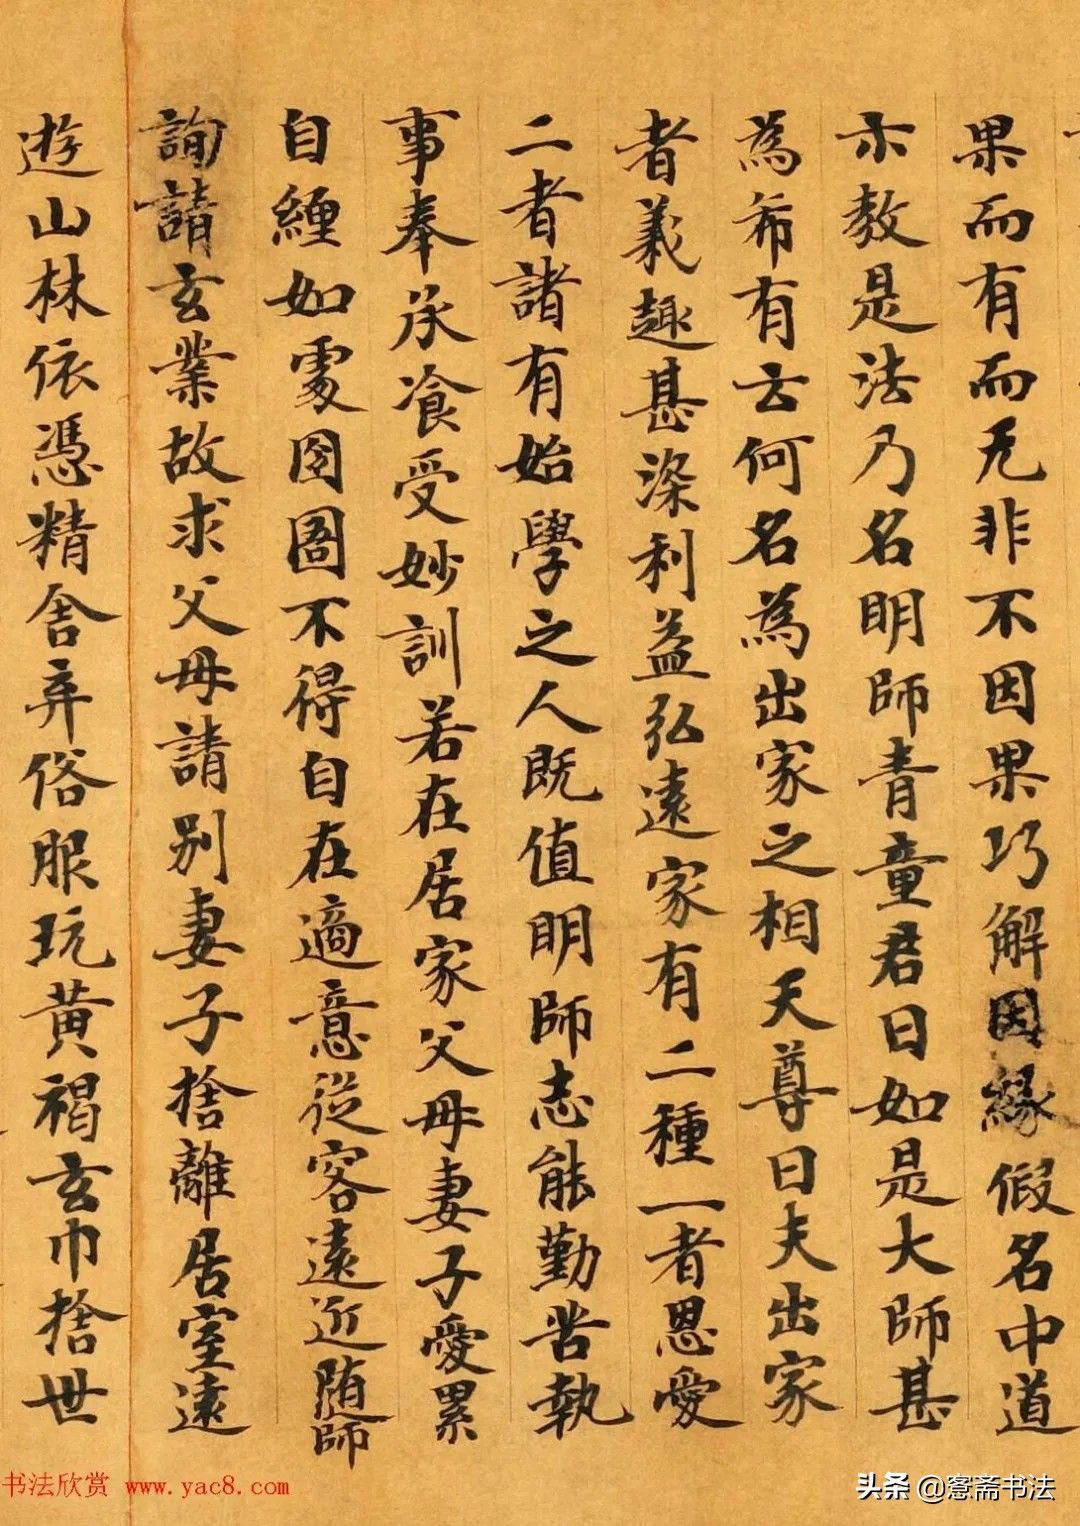 果而有而无非不因果巧解因緣假名中道
示教是法乃名明師青童君曰如是大師甚
為希有云何名為出家之相天尊曰夫出家
者義趣甚深利益弘遠家有二種一者恩愛
二者諸有始學之人既值明師志能勤苦執
事奉承飡受妙訓若在居家父母妻子愛累
自纏如處囹圄不得自在適意從容遠近随師
詢請玄業故求父母請别妻子捨離居室遠
遊山林依憑精舍弃俗服玩黃褐玄巾捨世
书法欣赏 www.yac8.com
头条 @窓斋书法